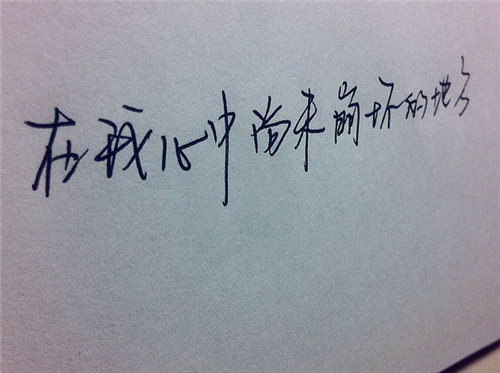 在我心中尚未崩坏的地方